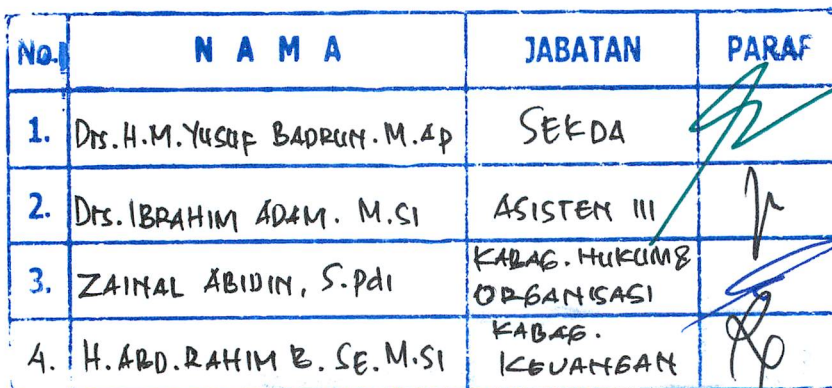 No. N A M A JABATAN PARAF
1. Drs. H.M. YUSUF BADRUN. M.AP SEKDA
2. Drs. IBRAHIM ADAM. M.SI ASISTEN III
3. ZAINAL ABIDIN, S.PdI KABAG. HUKUM &
ORGANISASI
4. H. ABD. RAHIM B. SE. M.SI KABAG.
KEUANGAN